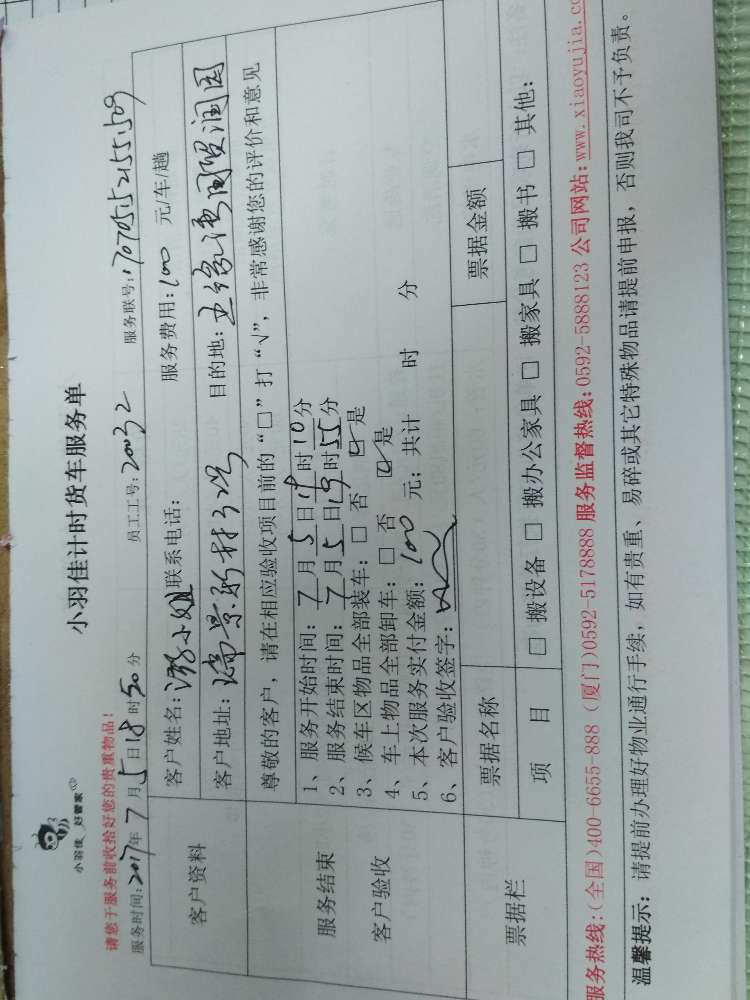 小羽佳 好管家
小羽佳计时货车服务单
请您于服务前收拾好您的贵重物品！
服务时间：2017年7月5日18时50分 员工工号：20032 服务联号：1707051521551509
客户资料
客户姓名：游小姐 联系电话： 服务费用：100 元/车/趟
客户地址：瑞景新村 目的地：五缘湾国贸润园
服务结束
客户验收
尊敬的客户，请在相应验收项目前的“□”打“√”，非常感谢您的评价和意见
1、服务开始时间：7月5日19时10分
2、服务结束时间：7月5日19时55分
3、候车区物品全部装车：□ 否 ☑ 是
4、车上物品全部卸车：□ 否 ☑ 是
5、本次服务实付金额：100 元；共计 时 分
6、客户验收签字：
票据栏
票据名称 票据金额
项 目 □ 搬设备 □ 搬办公家具 □ 搬家具 □ 搬书 □ 其他：
服务热线：（全国）400-6655-888（厦门）0592-5178888 服务监督热线：0592-5888123 公司网站：www.xiaoyujia.co
温馨提示：请提前办理好物业通行手续，如有贵重、易碎或其它特殊物品请提前申报，否则我司不予负责。